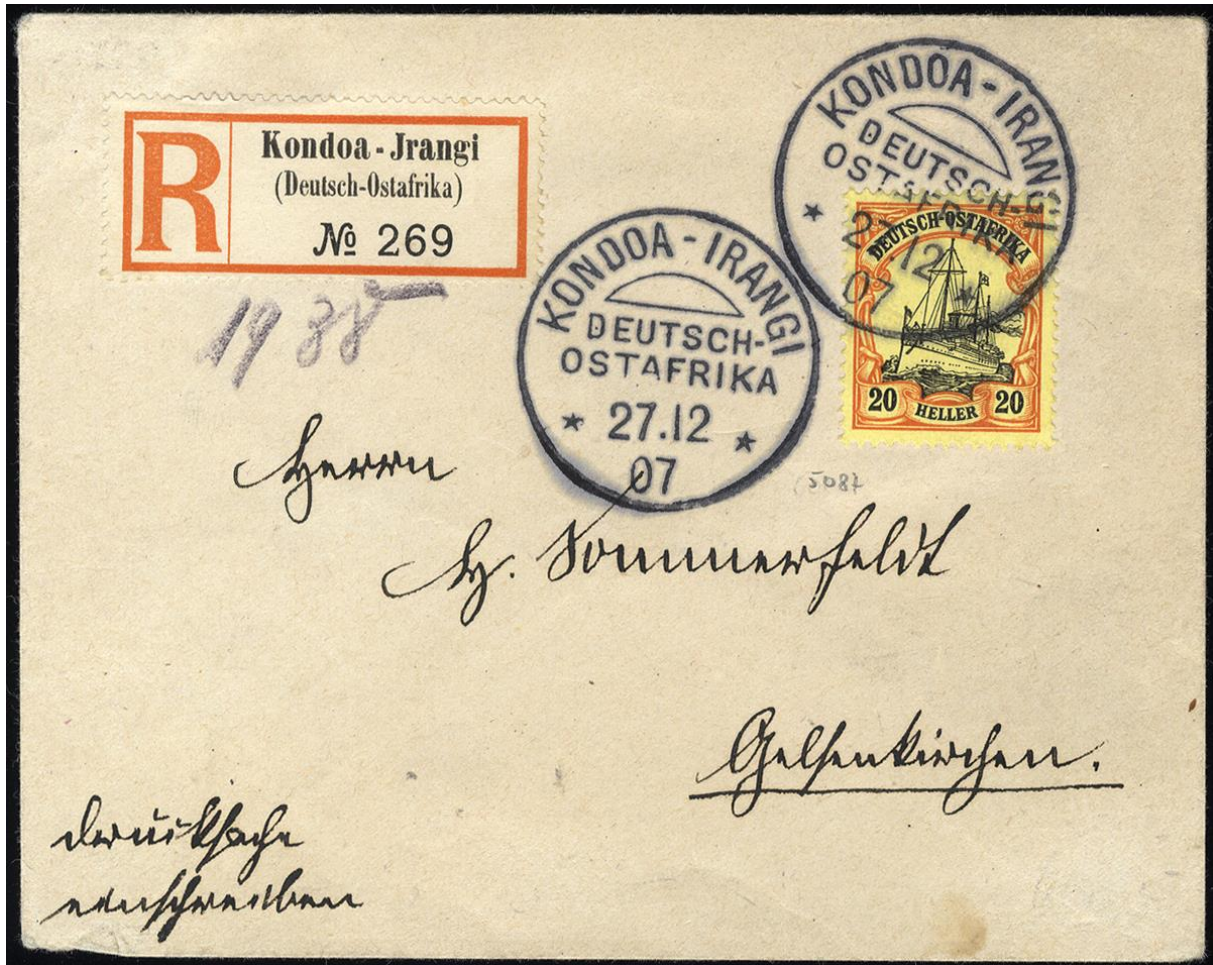 R
Kondoa-Jrangi
(Deutsch-Ostafrika)
№ 269
1938
KONDOA-IRANGI
DEUTSCH-
OSTAFRIKA
27.12
07
KONDOA-IRANGI
DEUTSCH-
OSTAFRIKA
27.12
07
DEUTSCH-OSTAFRIKA
20 HELLER 20
5087
Herrn
H. Sommerfeldt
Gelsenkirchen.
Drucksache
einschreiben